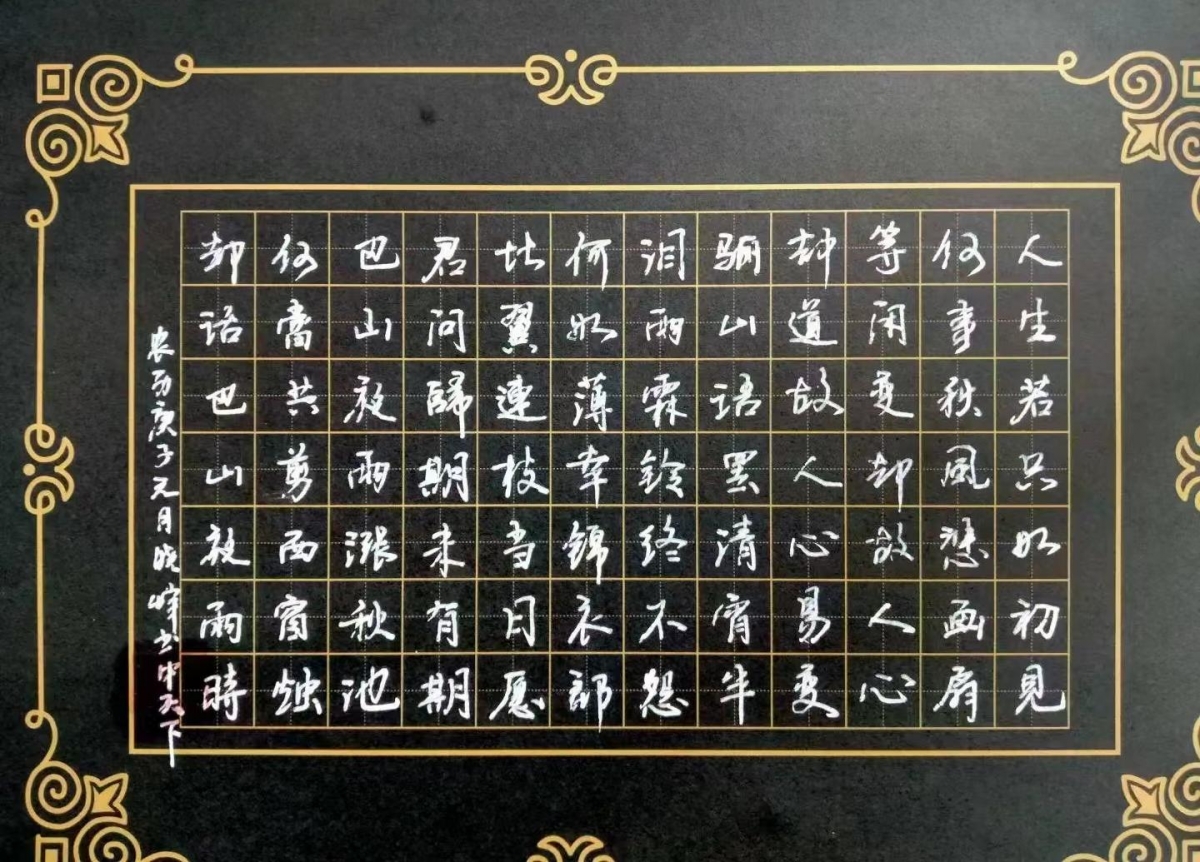 人生若只如初見
何事秋風悲画扇
等闲变却故人心
却道故人心易变
骊山语罢清宵半
泪雨霖铃终不怨
何如薄幸锦衣郎
比翼連枝当日愿
君问歸期未有期
巴山夜雨漲秋池
何當共剪西窗烛
却话巴山夜雨時
农历庚子元月晓峰书中天下